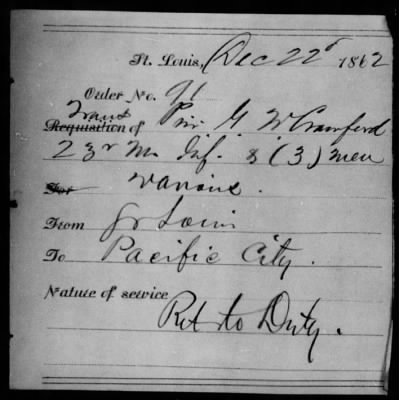 St. Louis, Dec 22d 1862
Order No. 91
Trans
Requisition of Priv G. W Crawford
23r Mo Inf. & (3) men
For various.
From St Louis
To Pacific City.
Nature of service
Ret to Duty.